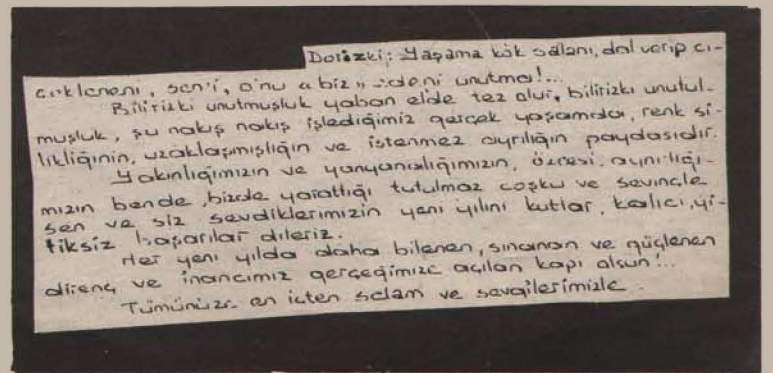 Dorizki; Yaşama kök salanı, dal verip çi-
çekleneni, sen'i, o'nu a biz,, edeni unutma!...
Bilirizki unutmuşluk yaban elde tez olur, bilirizki unutul-
muşluk, şu nakış nakış işlediğimiz gerçek yaşamda, renk si-
likliğinin, uzaklaşmışlığın ve istenmez ayrılığın paydasıdır.
Yakınlığımızın ve yanyanalığımızın, özcesi aynılığı-
mızın bende, bizde yarattığı tutulmaz coşku ve sevinçle
sen ve siz sevdiklerimizin yeni yılını kutlar, kalıcı, yi-
tiksiz başarılar dileriz.
Her yeni yılda daha bilenen, sınanan ve güçlenen
direnç ve inancımız gerçeğimize açılan kapı olsun!...
Tümünüze en içten selam ve sevgilerimizle.